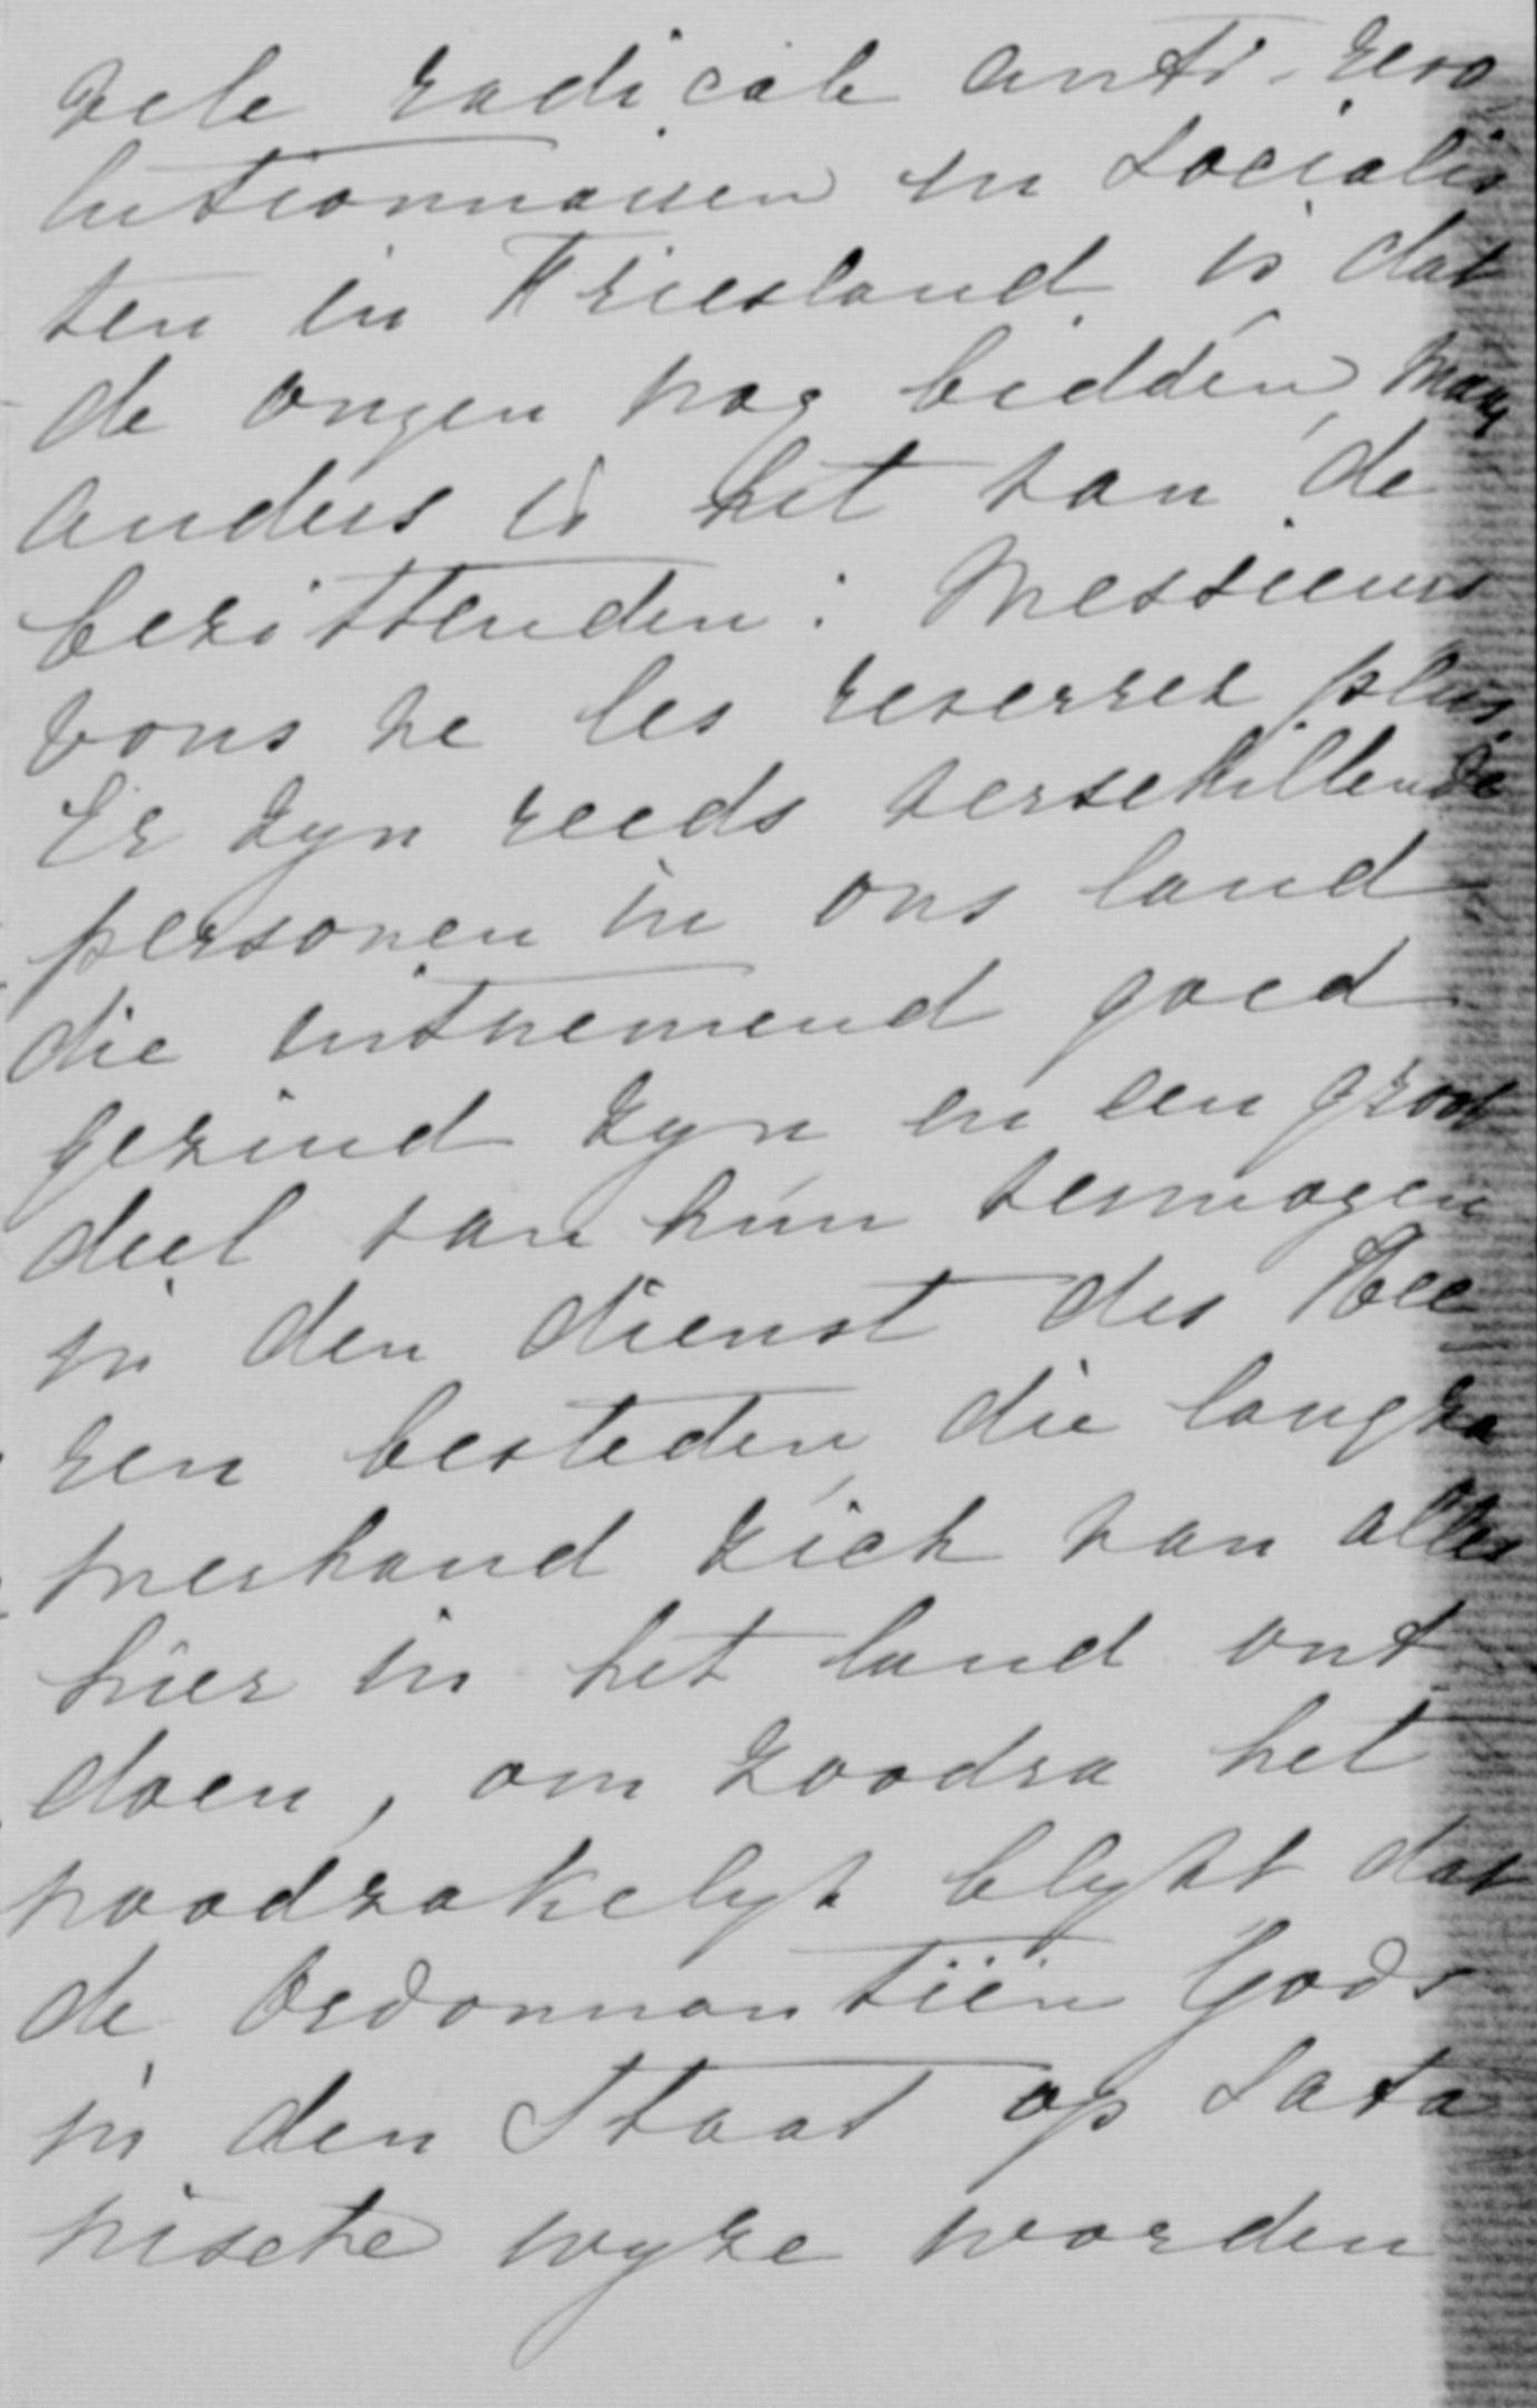 vele radicale anti-revo
lutionnairen en Socialis
ten in Friesland is dat
de onzen nog bidden, maar
anders is het van de
bezittenden: Messieurs
vous ne les reverrez plus.
Er zyn reeds verschillende
personen in ons land
die uitnemend goed
gezind zyn en een groot
deel van hun vermogen
in den dienst des Hee
ren besteden, die langza
merhand zich van alles
hier in het land ont
doen, om zoodra het
noodzakelyk blykt dat
de Ordonnantiën Gods
in den Staat op Sata
nische wyze worden